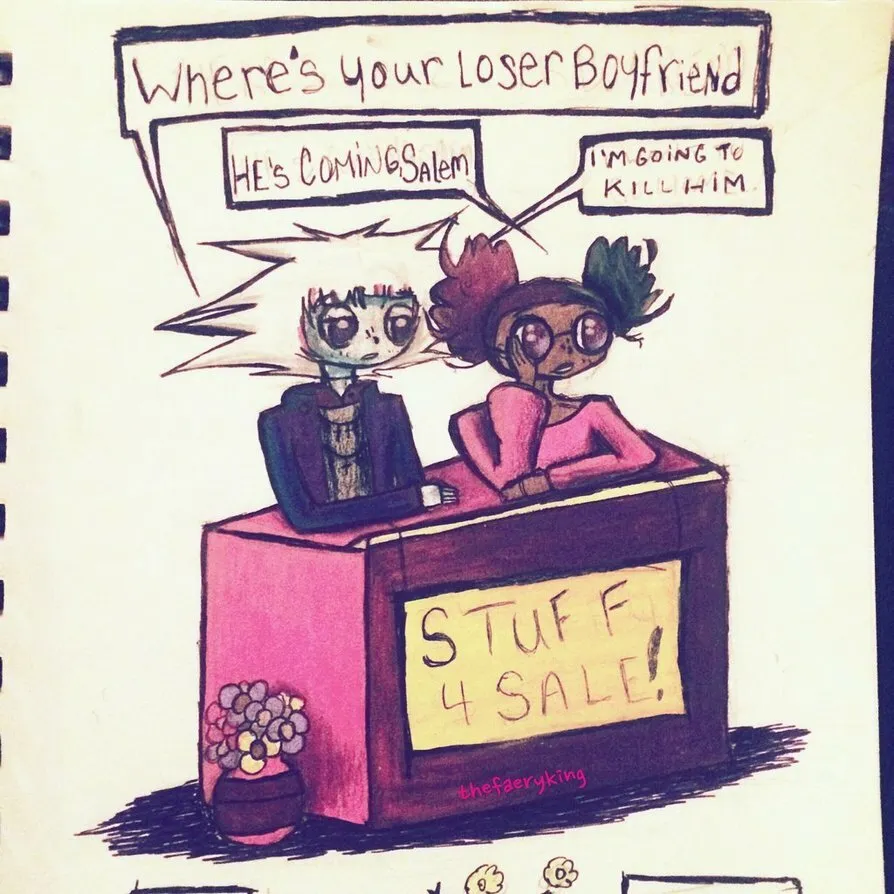 Where's your Loser Boyfriend
HE'S COMING, Salem
I'M GOING TO
KILL HIM.
STUFF
4 SALE!
thefaeryking